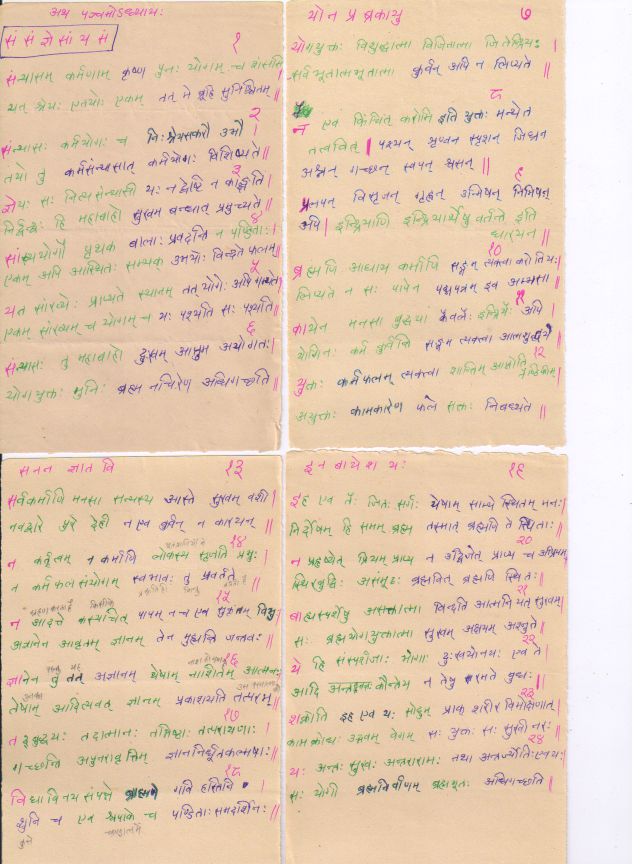 अथ पञ्चमोऽध्यायः
सं सं ज्ञे सां य सं
१
संन्यासम् कर्मणाम् कृष्ण पुनः योगम् च शंससि
यत् श्रेयः एतयोः एकम् तत् मे ब्रूहि सुनिश्चितम् ||
२
संन्यासः कर्मयोगः च निःश्रेयसकरौ उभौ |
तयोः तु कर्मसंन्यासात् कर्मयोगः विशिष्यते ||
३
ज्ञेयः सः नित्यसंन्यासी यः न द्वेष्टि न काङ्क्षति
निर्द्वन्द्वः हि महाबाहो सुखम् बन्धात् प्रमुच्यते ||
४
सांख्ययोगौ पृथक् बालाः प्रवदन्ति न पण्डिताः |
एकम् अपि आस्थितः सम्यक् उभयोः विन्दते फलम् ||
५
यत् सांख्यैः प्राप्यते स्थानम् तत् योगैः अपि गम्यते |
एकम् सांख्यम् च योगम् च यः पश्यति सः पश्यति ||
६
संन्यासः तु महाबाहो दुःखम् आप्तुम् अयोगतः |
योगयुक्तः मुनिः ब्रह्म नचिरेण अधिगच्छति ||
यो न प्र ब्र का यु
७
योगयुक्तः विशुद्धात्मा विजितात्मा जितेन्द्रियः |
सर्वभूतात्मभूतात्मा कुर्वन् अपि न लिप्यते ||
८
न एव किंचित् करोमि इति युक्तः मन्येत
तत्त्ववित् | पश्यन् शृण्वन् स्पृशन् जिघ्रन्
अश्नन् गच्छन् स्वपन् श्वसन् ||
९
प्रलपन् विसृजन् गृह्णन् उन्मिषन् निमिषन्
अपि | इन्द्रियाणि इन्द्रियार्थेषु वर्तन्ते इति
धारयन् ||
१०
ब्रह्मणि आधाय कर्माणि सङ्गम् त्यक्त्वा करोति यः |
लिप्यते न सः पापेन पद्मपत्रम् इव अम्भसा
११
कायेन मनसा बुद्ध्या केवलैः इन्द्रियैः अपि |
योगिनः कर्म कुर्वन्ति सङ्गम् त्यक्त्वा आत्मशुद्धये
१२
युक्तः कर्मफलम् त्यक्त्वा शान्तिम् आप्नोति नैष्ठिकीम्
अयुक्तः कामकारेण फले सक्तः निबध्यते ||
स न न ज्ञा त वि
१३
सर्वकर्माणि मनसा संन्यस्य आस्ते सुखम् वशी |
नवद्वारे पुरे देही न एव कुर्वन् न कारयन् ||
१४
न कर्तृत्वम् न कर्माणि लोकस्य सृजति प्रभुः |
न कर्मफलसंयोगम् स्वभावः तु प्रवर्तते ||
१५
न आदत्ते कस्यचित् पापम् न च एव सुकृतम् विभुः
अज्ञानेन आवृतम् ज्ञानम् तेन मुह्यन्ति जन्तवः
१६
ज्ञानेन तु तत् अज्ञानम् येषाम् नाशितम् आत्मनः
तेषाम् आदित्यवत् ज्ञानम् प्रकाशयति तत्परम् ||
१७
तद्बुद्धयः तदात्मानः तन्निष्ठाः तत्परायणाः |
गच्छन्ति अपुनरावृत्तिम् ज्ञाननिर्धूतकल्मषाः ||
१८
विद्याविनयसंपन्ने ब्राह्मणे गवि हस्तिनि |
शुनि च एव श्वपाके च पण्डिताः समदर्शिनः ||
इ न बा ये श यः
१९
इह एव तैः जितः सर्गः येषाम् साम्ये स्थितम् मनः |
निर्दोषम् हि समम् ब्रह्म तस्मात् ब्रह्मणि ते स्थिताः ||
२०
न प्रहृष्येत् प्रियम् प्राप्य न उद्विजेत् प्राप्य च अप्रियम्
स्थिरबुद्धिः असंमूढः ब्रह्मवित् ब्रह्मणि स्थितः ||
२१
बाह्यस्पर्शेषु असक्तात्मा विन्दति आत्मनि यत् सुखम् |
सः ब्रह्मयोगयुक्तात्मा सुखम् अक्षयम् अश्नुते ||
२२
ये हि संस्पर्शजाः भोगाः दुःखयोनयः एव ते |
आदि अन्तवन्तः कौन्तेय न तेषु रमते बुधः ||
२३
शक्नोति इह एव यः सोढुम् प्राक् शरीरविमोक्षणात् |
कामक्रोधः उद्भवम् वेगम् सः युक्तः सः सुखी नरः ||
२४
यः अन्तः सुखः अन्तरारामः तथा अन्तर्ज्योतिः एव यः |
सः योगी ब्रह्मनिर्वाणम् ब्रह्मभूतः अधिगच्छति ||